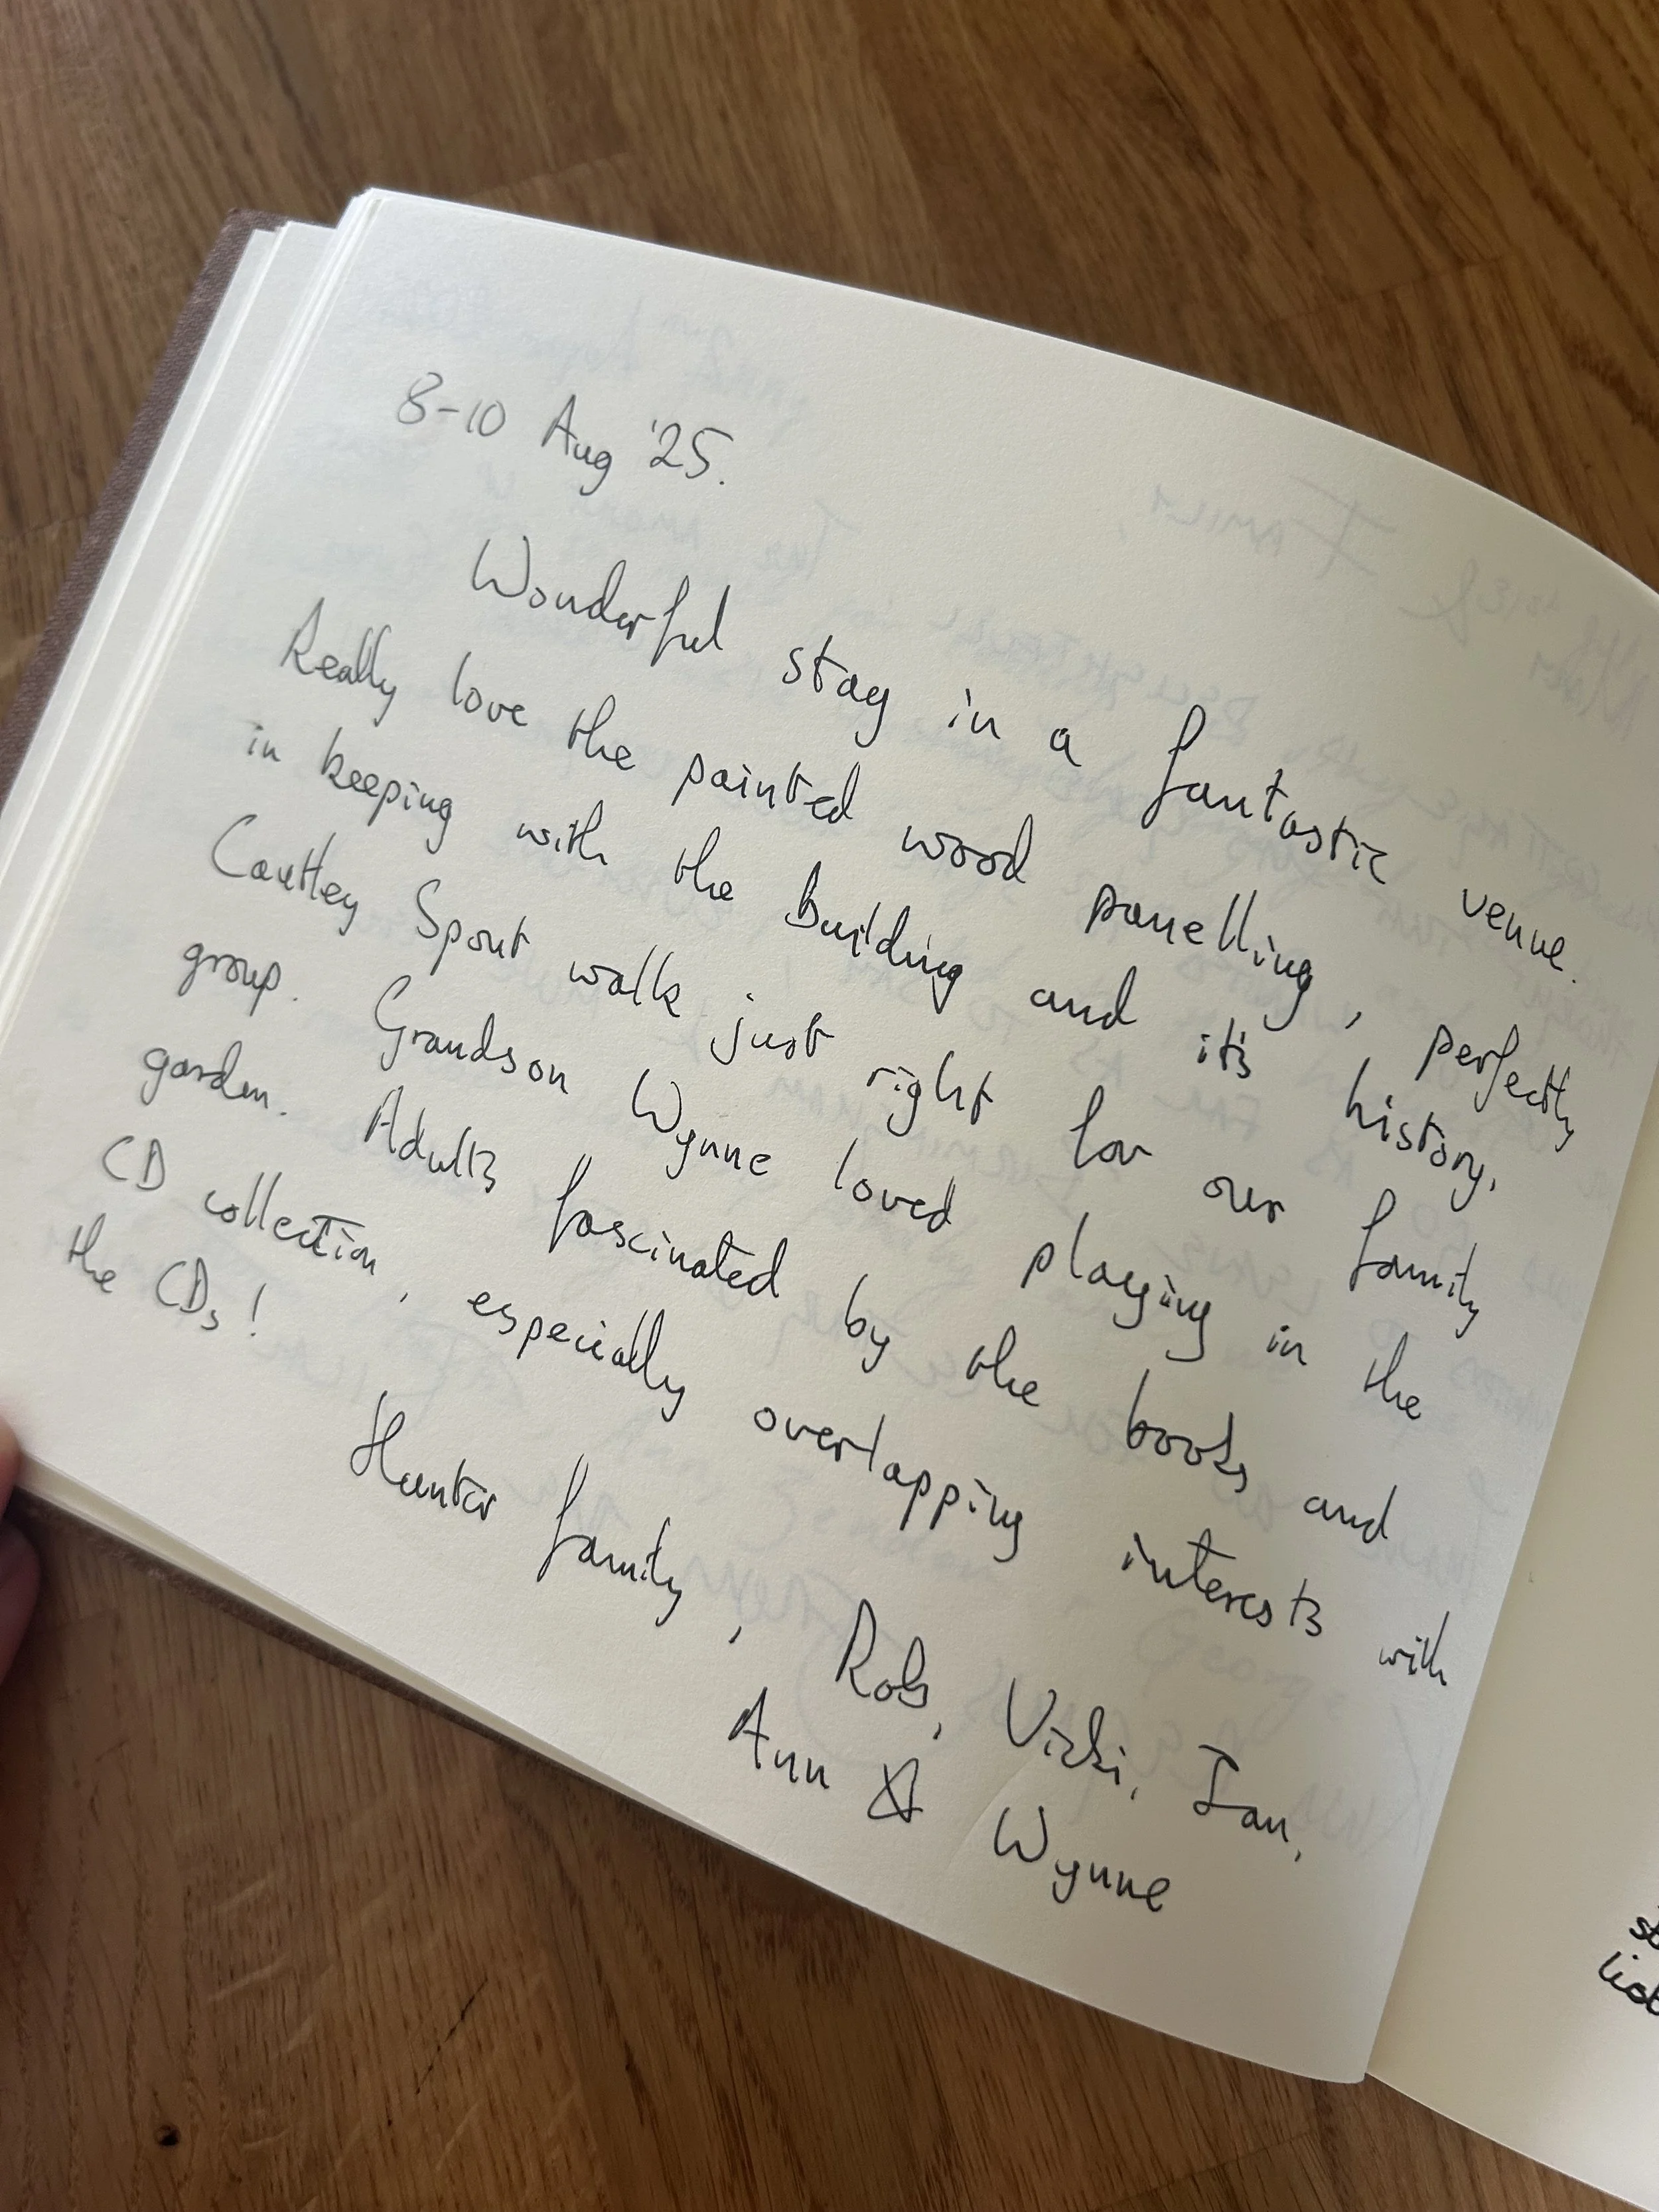 8-10 Aug '25.
Wonderful stay in a fantastic venue.
Really love the painted wood panelling, perfectly
in keeping with the building and it's history.
Cautley Spout walk just right for our family
group. Grandson Wynne loved playing in the
garden. Adults fascinated by the books and
CD collection, especially overlapping interests with
the CDs!
Hunter family, Rob, Vicki, Ian,
Ann & Wynne